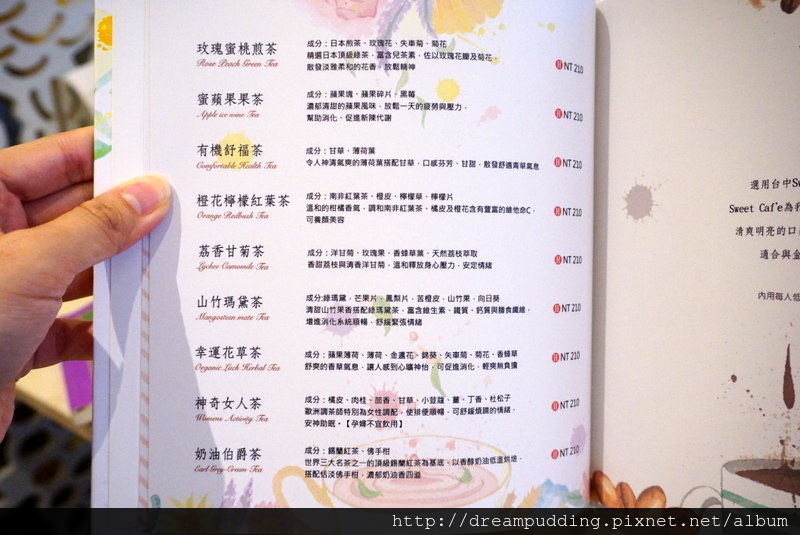 玫瑰蜜桃煎茶
Rose Peach Green Tea
成分：日本煎茶、玫瑰花、矢車菊、菊花
精選日本頂級綠茶，富含兒茶素，佐以玫瑰花瓣及菊花，
散發淡雅柔和的花香，放鬆精神
NT 210
蜜蘋果果茶
Apple ice wine Tea
成分：蘋果塊、蘋果碎片、黑莓
濃郁清甜的蘋果風味，放鬆一天的疲勞與壓力，
幫助消化、促進新陳代謝
NT 210
有機舒福茶
Comfortable Health Tea
成分：甘草、薄荷葉
令人神清氣爽的薄荷葉搭配甘草，口感芬芳、甘甜，散發舒適青草氣息
NT 210
橙花檸檬紅葉茶
Orange Redbush Tea
成分：南非紅葉茶、橙皮、檸檬草、檸檬片
溫和的柑橘香氣，調和南非紅葉茶、橘皮及橙花含有豐富的維他命C，
可養顏美容
NT 210
荔香甘菊茶
Lychee Camomile Tea
成分：洋甘菊、玫瑰果、香蜂草葉、天然荔枝萃取
香甜荔枝與清香洋甘菊，溫和釋放身心壓力，安定情緒
NT 210
山竹瑪黛茶
Mangosteen mate Tea
成分:綠瑪黛、芒果片、鳳梨片、苦橙皮、山竹果、向日葵
清甜山竹果香搭配綠瑪黛茶，富含維生素、鐵質、鈣質與膳食纖維，
增進消化系統順暢，舒緩緊張情緒
NT 210
幸運花草茶
Organic Luck Herbal Tea
成分：蘋果薄荷、薄荷、金盞花、錦葵、矢車菊、菊花、香蜂草
舒爽的香草氣息，讓人感到心曠神怡，可促進消化，輕爽無負擔
NT 210
神奇女人茶
Womens Activity Tea
成分：橘皮、肉桂、茴香、甘草、小荳蔻、薑、丁香、杜松子
歐洲調茶師特別為女性調配，使排便順暢，可舒緩煩躁的情緒，
安神助眠。【孕婦不宜飲用】
NT 210
奶油伯爵茶
Earl Grey Cream Tea
成分：錫蘭紅茶、佛手柑
世界三大名茶之一的頂級錫蘭紅茶為基底，以香醇奶油低溫烘焙，
搭配恬淡佛手柑，濃郁奶油香四溢
NT 210
選用台中Sw
Sweet Caf'e為我
清爽明亮的口
適合與金
內用每人低
http://dreampudding.pixnet.net/album